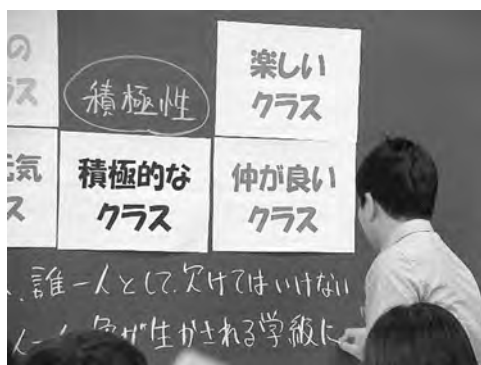 の
ス
積極性
楽しい
クラス
元気
ス
積極的な
クラス
仲が良い
クラス
、誰一人として、欠けてはいけない
が生かされる学級に